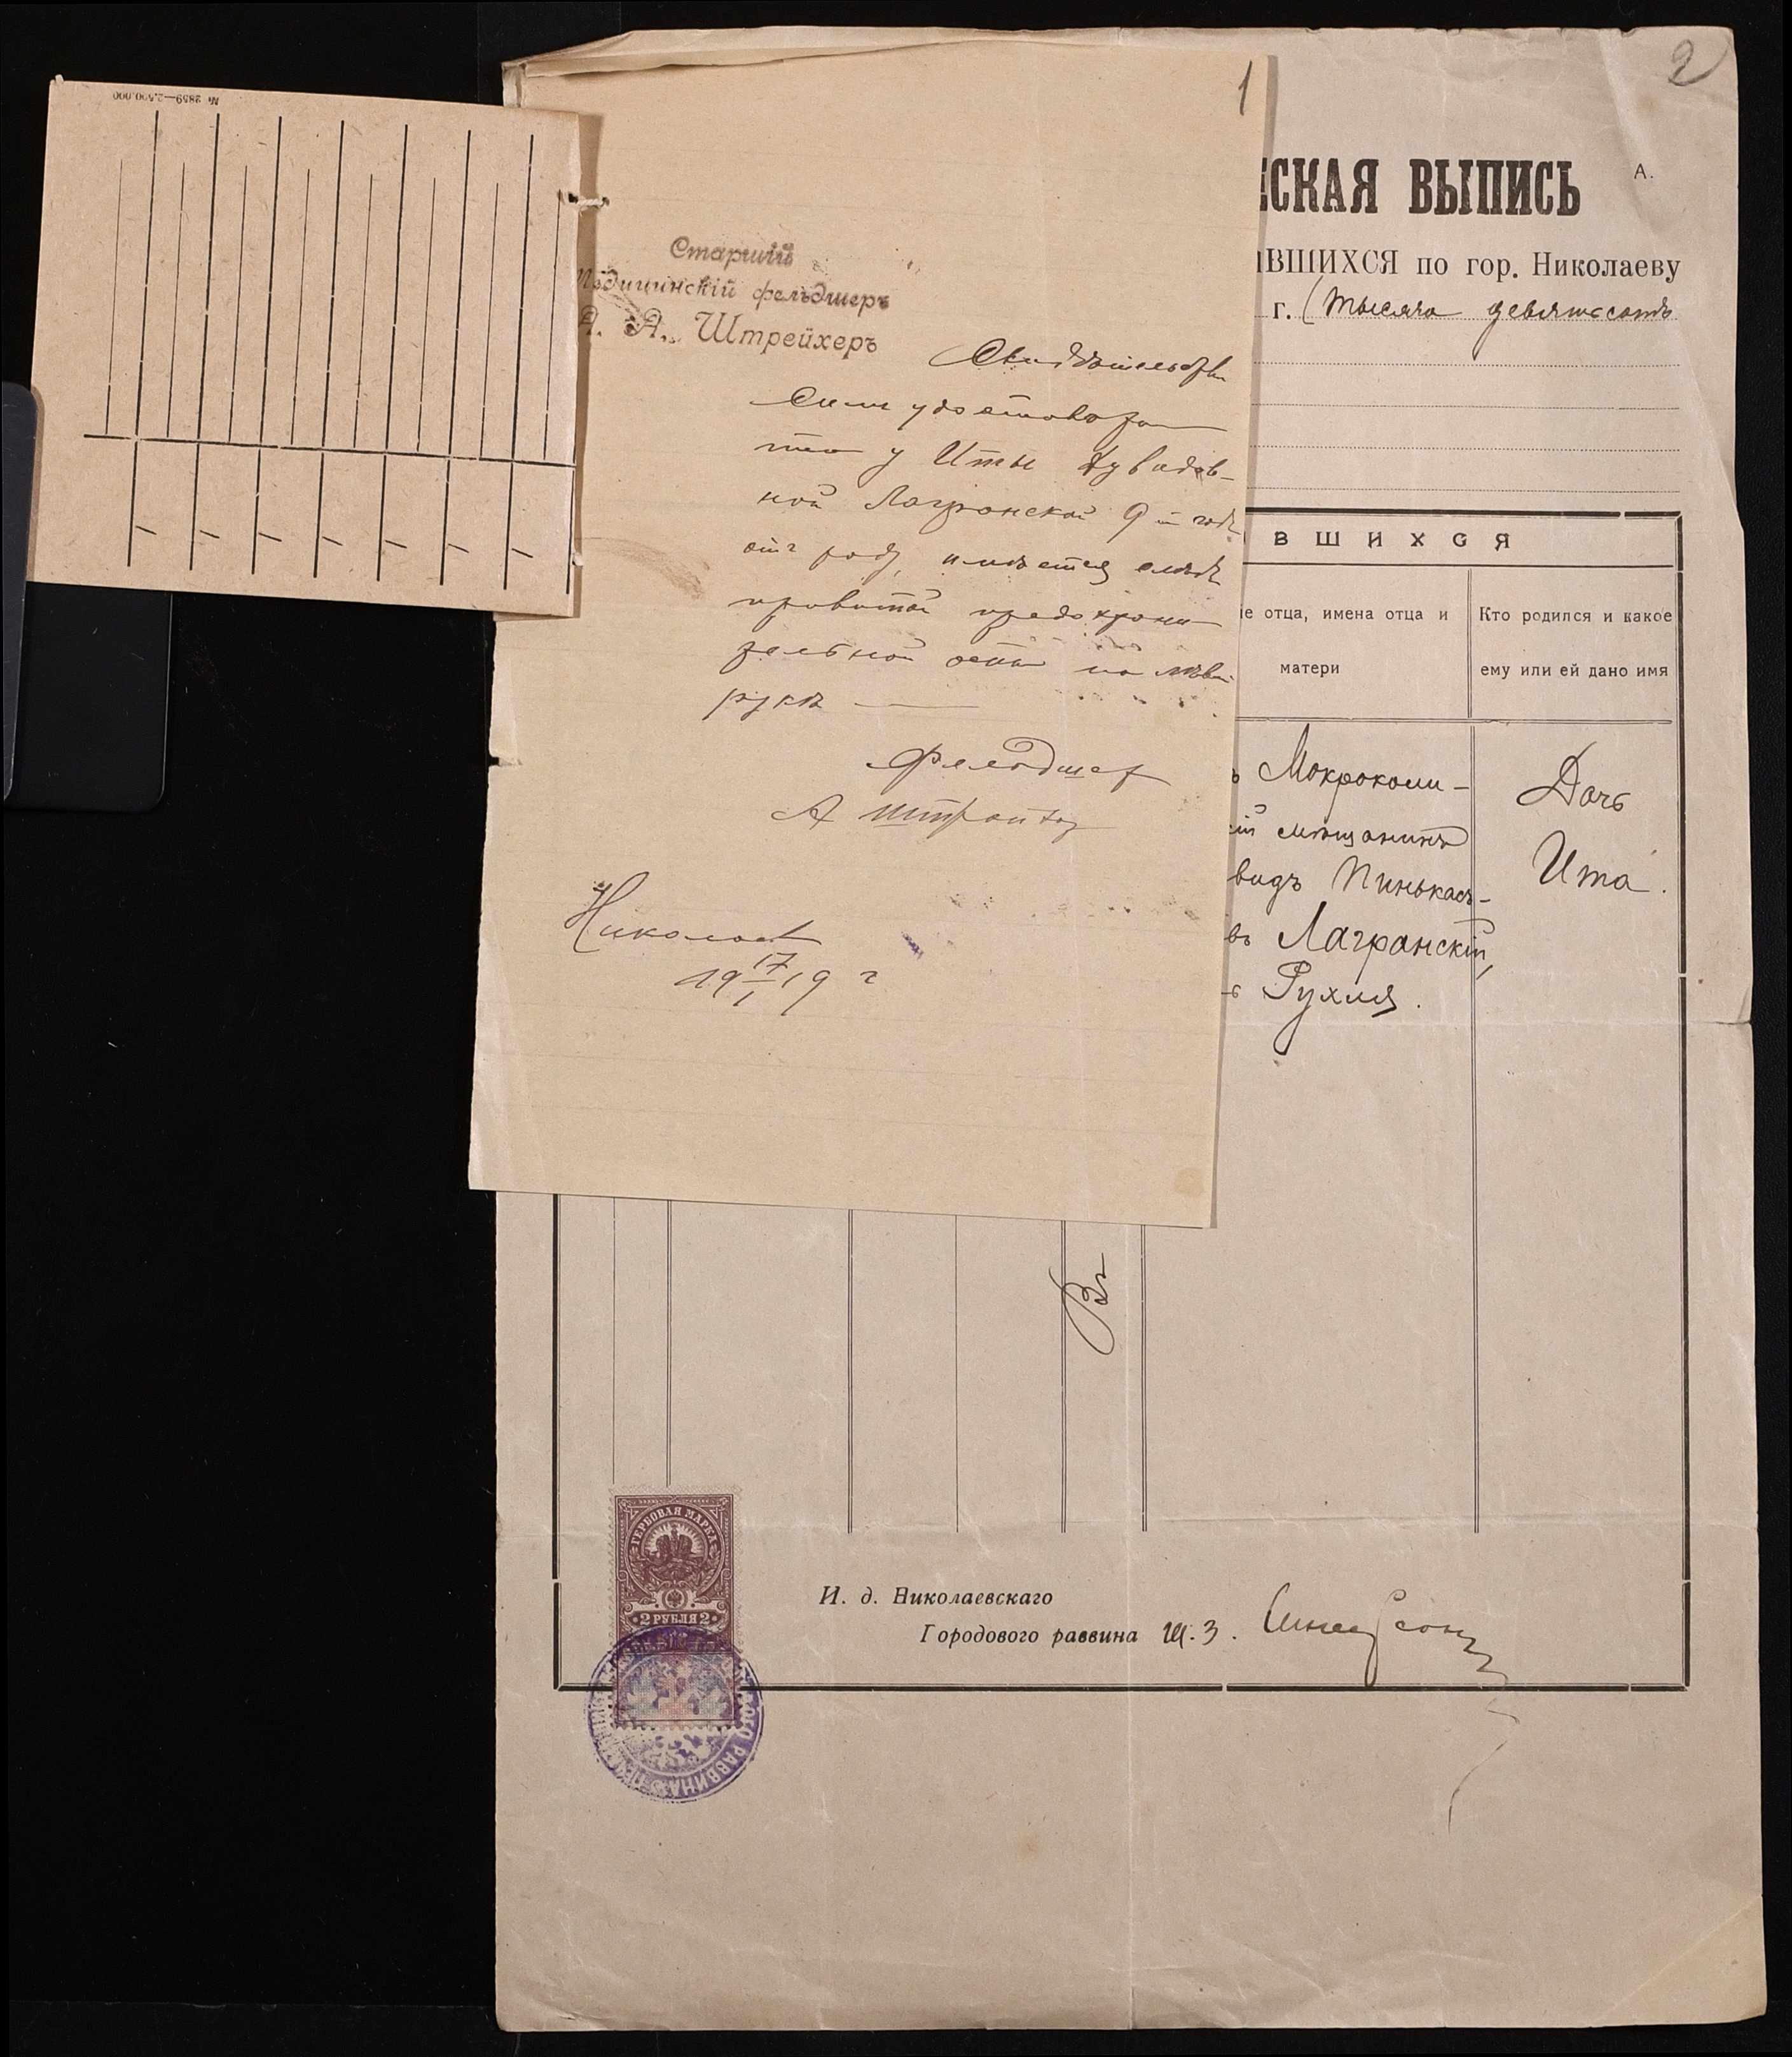 № 2859—2.500.000
1
Старшій
Медицинскій фельдшеръ
А. А. Штрейхеръ
Свидѣтельство
Симъ удостоверяю
что у Иты Дувидов-
ной Лагранской 9 й годъ
отъ роду, имѣется слѣдъ
привитой предохрани
тельной оспы на лѣвой
рукѣ
Фельдшер
А Штрейхер
Николаев
19 17/I 19 г
2
ЕСКАЯ ВЫПИСЬ
А.
ИВШИХСЯ по гор. Николаеву
г. (тысяча девятьсотъ
ВШИХСЯ
ие отца, имена отца и
матери
Кто родился и какое
ему или ей дано имя
ъ Мокрокали-
кій мѣщанинъ
видъ Пинькасъ-
въ Лагранскій,
ь Рухля.
Дочь
Ита.
ГЕРБОВАЯ МАРКА
2 РУБЛЯ 2
РАВВИНА
И. д. Николаевскаго
Городового раввина Ш. З.